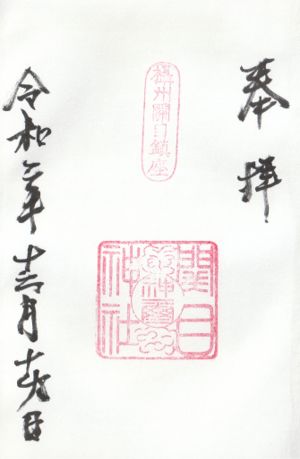 奉拝
攝州開口鎮座
開口
神社
令和二年十二月十六日